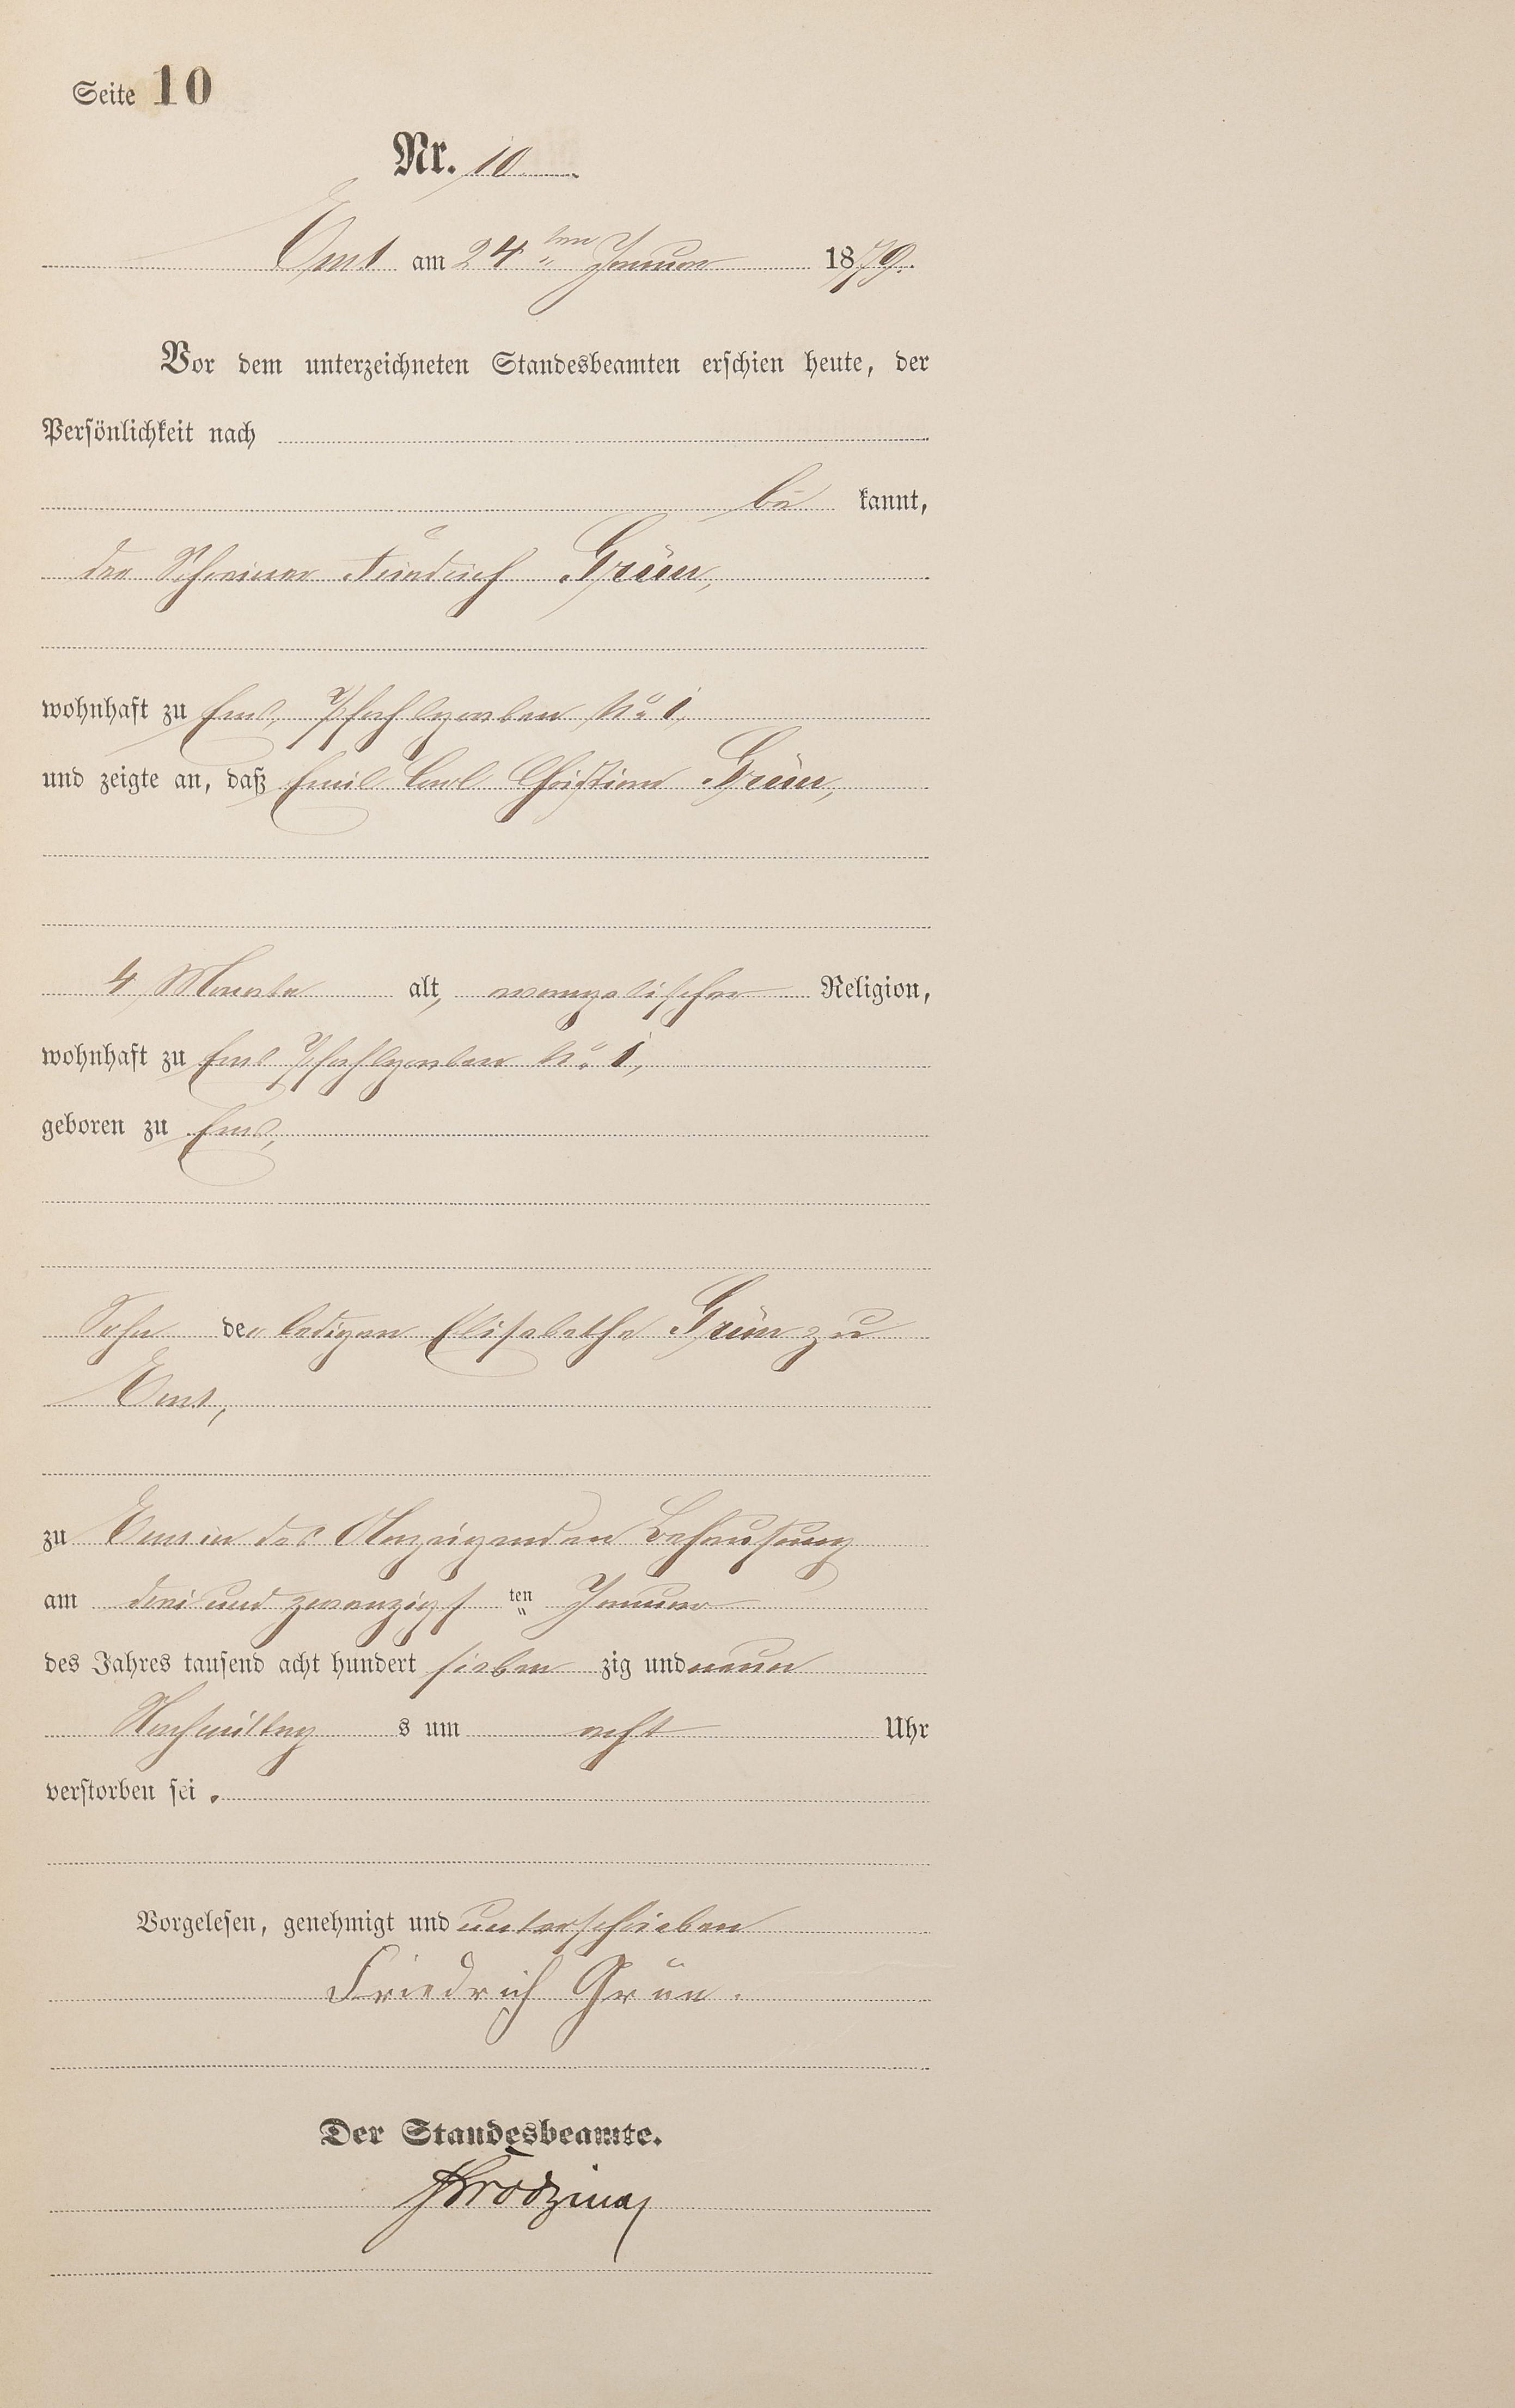 Seite 10
Nr. 10
Ems am 24ten Januar 1879.
Vor dem unterzeichneten Standesbeamten erschien heute, der
Persönlichkeit nach
be kannt,
der Schreiner Friedrich Grün,
wohnhaft zu Ems, Pfahlgraben No 1,
und zeigte an, daß Emil Carl Christian Grün,
4 Monate alt, evangelischer Religion,
wohnhaft zu Ems Pfahlgraben No 1,
geboren zu Ems,
Sohn der ledigen Elisabethe Grün zu
Ems,
zu Ems in des Anzeigenden Behausung
am drei und zwanzigst ten Januar
des Jahres tausend acht hundert sieben zig und neun
Nachmittag s um acht Uhr
verstorben sei.
Vorgelesen, genehmigt und unterschrieben
Friedrich Grün.
Der Standesbeamte.